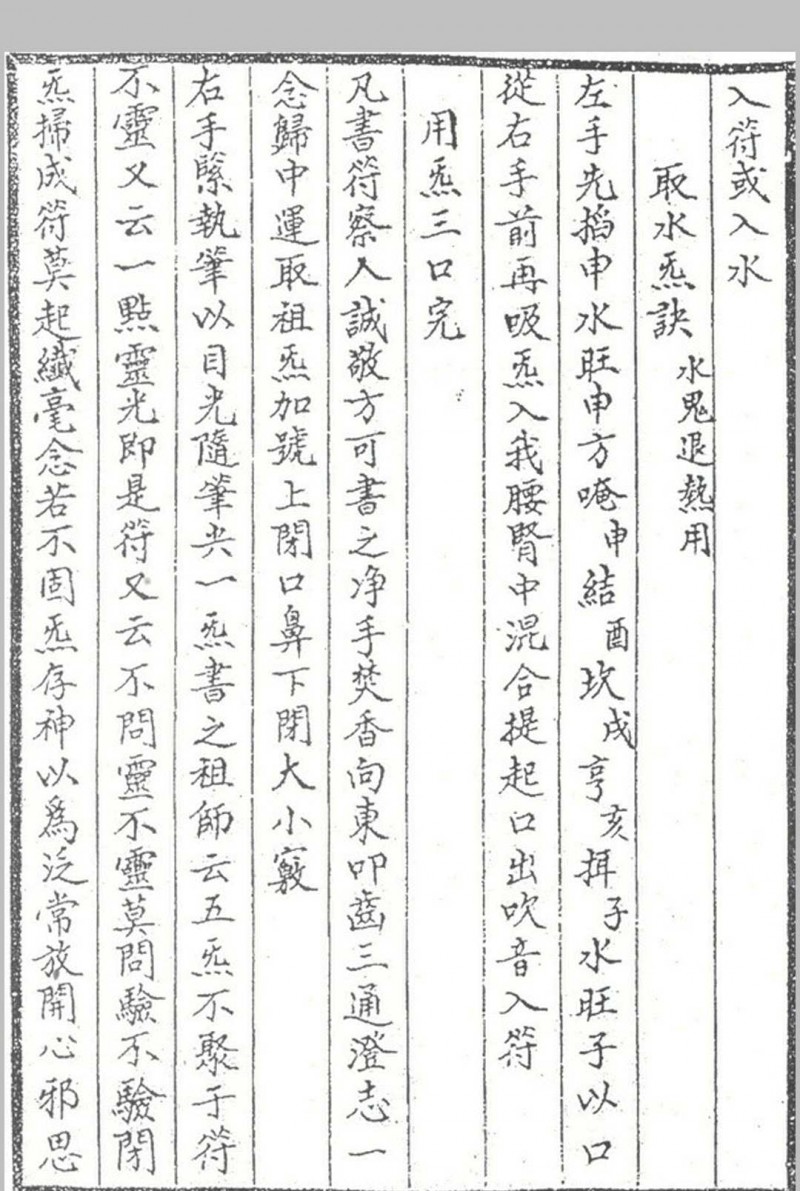 入符或入水
取水炁訣 水鬼退熱用
左手先掐申水旺申方唵申結酉坎戌亨亥揖子水旺子以口
從右手前再吸炁入我腰腎中混合提起口出吹音入符
用炁三口完
凡書符察人誠敬方可書之净手焚香向東叩齒三通澄志一
念歸中運取祖炁加號上閉口鼻下閉大小竅
右手緊執筆以目光隨筆尖一炁書之祖師云五炁不聚于符
不靈又云一點靈光即是符又云不問靈不靈莫問驗不驗閉
炁掃成符莫起纖毫念若不固炁存神以爲泛常放開心邪思